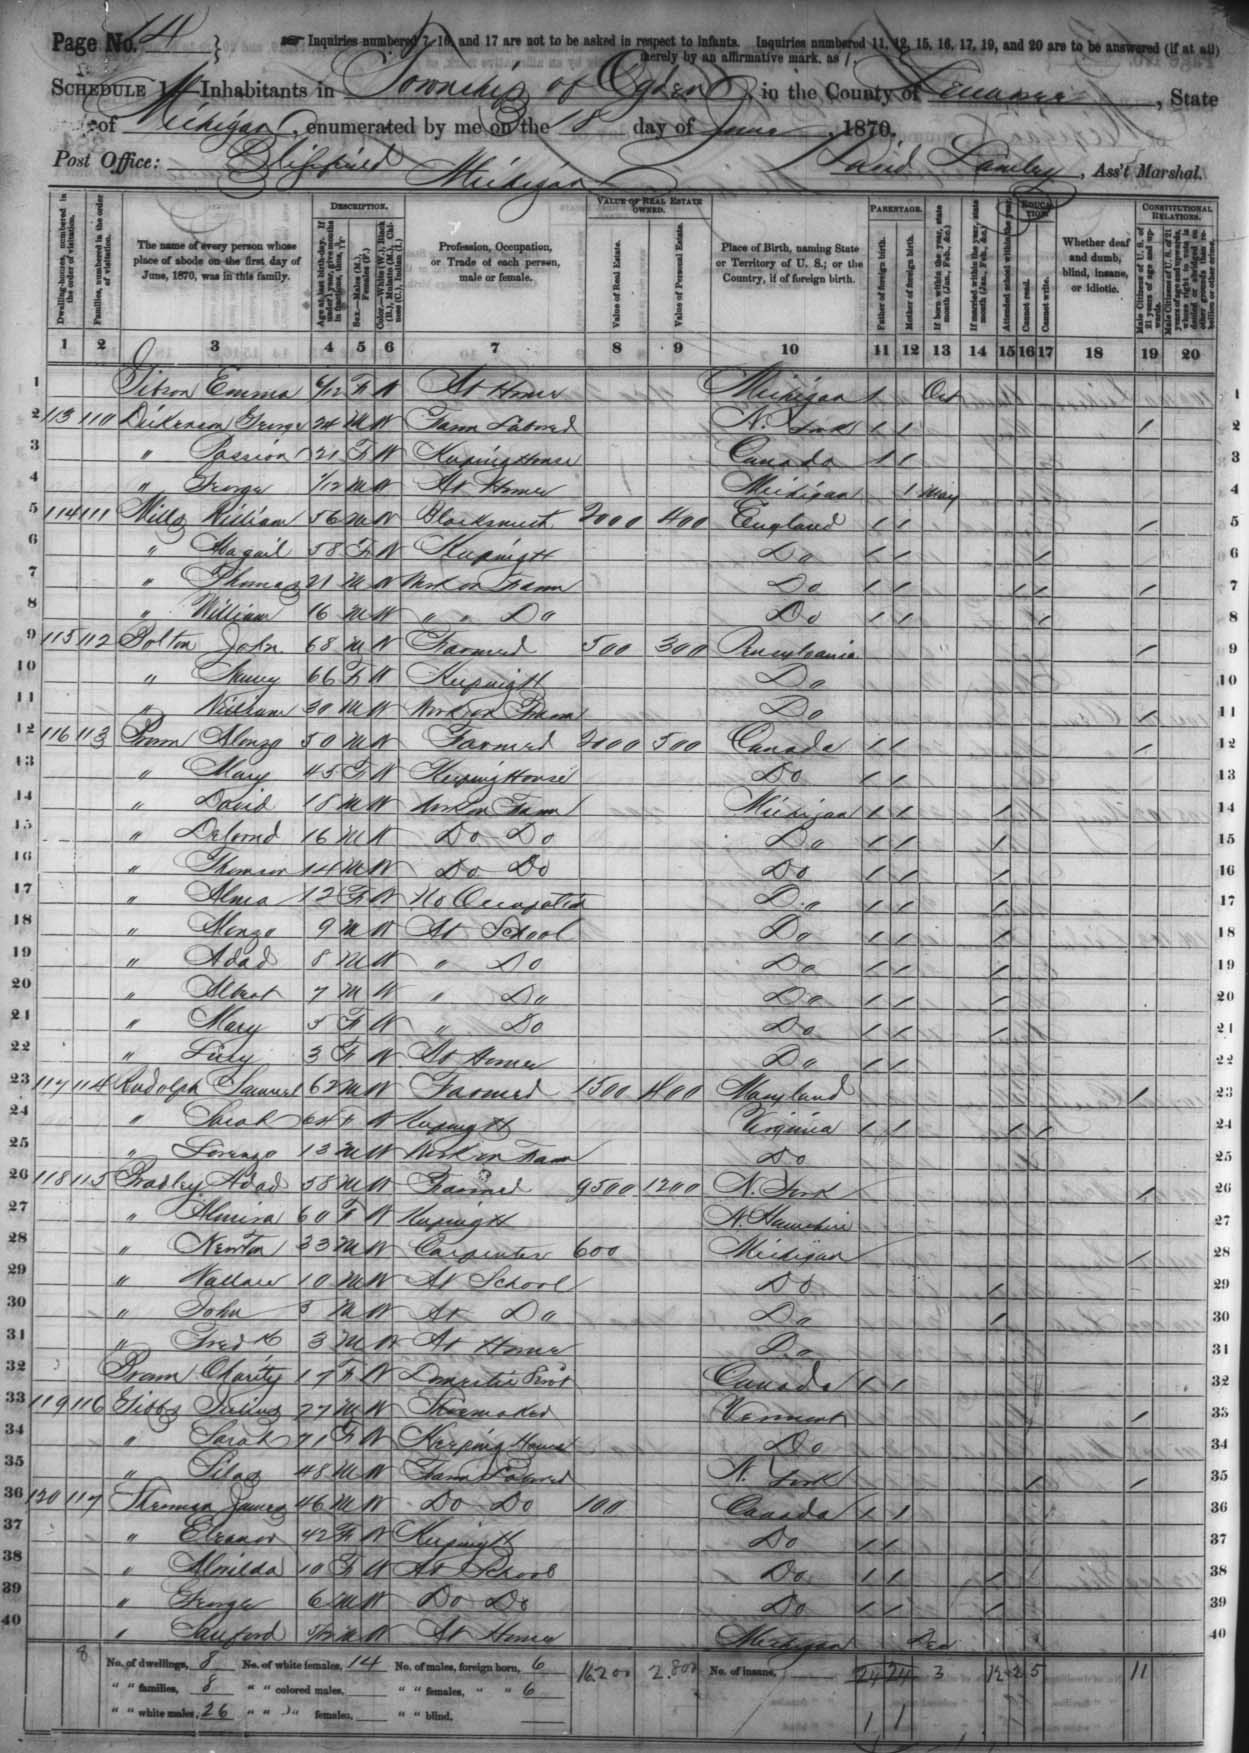 Page No. 14
Inquiries numbered 7, 16, and 17 are not to be asked in respect to infants. Inquiries numbered 11, 12, 15, 16, 17, 19, and 20 are to be answered (if at all) merely by an affirmative mark, as /.
SCHEDULE 1.—Inhabitants in Township of Ogden, in the County of Lenawee, State
of Michigan, enumerated by me on the 18 day of June, 1870.
Post Office: Blissfield Michigan
David , Ass't Marshal.
DESCRIPTION. VALUE OF REAL ESTATE OWNED. PARENTAGE. EDUCATION. CONSTITUTIONAL RELATIONS.
Dwelling-houses, numbered in the order of visitation.
Families, numbered in the order of visitation.
The name of every person whose place of abode on the first day of June, 1870, was in this family.
Age at last birth-day. If under 1 year, give months in fractions, thus, 3/12
Sex.—Males (M.), Females (F.)
Color.—White (W.), Black (B.), Mulatto (M.), Chinese (C.), Indian (I.)
Profession, Occupation, or Trade of each person, male or female.
Value of Real Estate.
Value of Personal Estate.
Place of Birth, naming State or Territory of U. S.; or the Country, if of foreign birth.
Father of foreign birth.
Mother of foreign birth.
If born within the year, state month (Jan., Feb., &c.)
If married within the year, state month (Jan., Feb., &c.)
Attended school within the year.
Cannot read.
Cannot write.
Whether deaf and dumb, blind, insane, or idiotic.
Male Citizens of U. S. of 21 years of age and upwards.
Male Citizens of U. S. of 21 years of age and upwards, whose right to vote is denied or abridged on other grounds than rebellion or other crime.
1 2 3 4 5 6 7 8 9 10 11 12 13 14 15 16 17 18 19 20
1 Emma 6/12 F W At Home Michigan / Oct 1
2 113 110 Dickerson George 24 M W Farm Labored N. York / / / 2
3 " 21 F W Keeping House Canada / / 3
4 " George 1/12 M W At Home Michigan / May 4
5 114 111 Mills William 56 M W Blacksmith 2000 400 England / / / 5
6 " Abagail 58 F W Keeping H Do / / / 6
7 " Thomas 21 M W Work on Farm Do / / / / / 7
8 " William 16 M W " " Do Do / / / 8
9 115 112 Bolton John 68 M W Farmed 500 300 Pensylvania / 9
10 " 66 F W Keeping H Do 10
11 " William 30 M W Work on Farm Do / 11
12 116 113 Alonzo 50 M W Farmed 2000 500 Canada / / / 12
13 " Mary 45 F W Keeping House Do / / 13
14 " David 18 M W Work on Farm Michigan / / / 14
15 " 16 M W Do Do Do / / / 15
16 " 14 M W Do Do Do / / / 16
17 " Alma 12 F W No Occupation Do / / / 17
18 " Alonzo 9 M W At School Do / / / 18
19 " Adad 8 M W " Do Do / / / 19
20 " Albert 7 M W " Do Do / / / 20
21 " Mary 5 F W " Do Do / / / 21
22 " Lucy 3 F W At Home Do / / 22
23 117 114 Rudolph Samuel 62 M W Farmed 1500 400 Maryland / 23
24 " Sarah 64 F W Keeping H Virginia / / / / 24
25 " Lorenzo 13 M W Work on Farm Do 25
26 118 115 Bradley Adad 58 M W Farmed 9500 1200 N. York / 26
27 " Almira 60 F W Keeping H N. Hamshire 27
28 " Newton 33 M W Carpenter 600 Michigan / 28
29 " Wallace 10 M W At School Do / 29
30 " John 5 M W At Do Do / 30
31 " Fredk 3 M W At Home Do 31
32 Charity 17 F W Domestic Servt Canada / / 32
33 119 116 Gibbs Julius 77 M W Shoemaker Vermont / 33
34 " Sarah 71 F W Keeping House Do 34
35 " Silas 48 M W Farm Labored N. York / / 35
36 120 117 Sherman James 46 M W Do Do 100 Canada / / 36
37 " Eleanor 42 F W Keeping H Do / / 37
38 " 10 F W At School Do / / / 38
39 " George 6 M W Do Do Do / / / 39
40 " Sanford 5/12 M W At Home Michigan Dec 40
8 No. of dwellings, 8 No. of white females, 14 No. of males, foreign born, 6 16.200 2.800 No. of insane, 24 24 3 12 2 5 11
" " families, 8 " " colored males, " " females, " " 6
" " white males, 26 " " " females, " " blind, 1 1